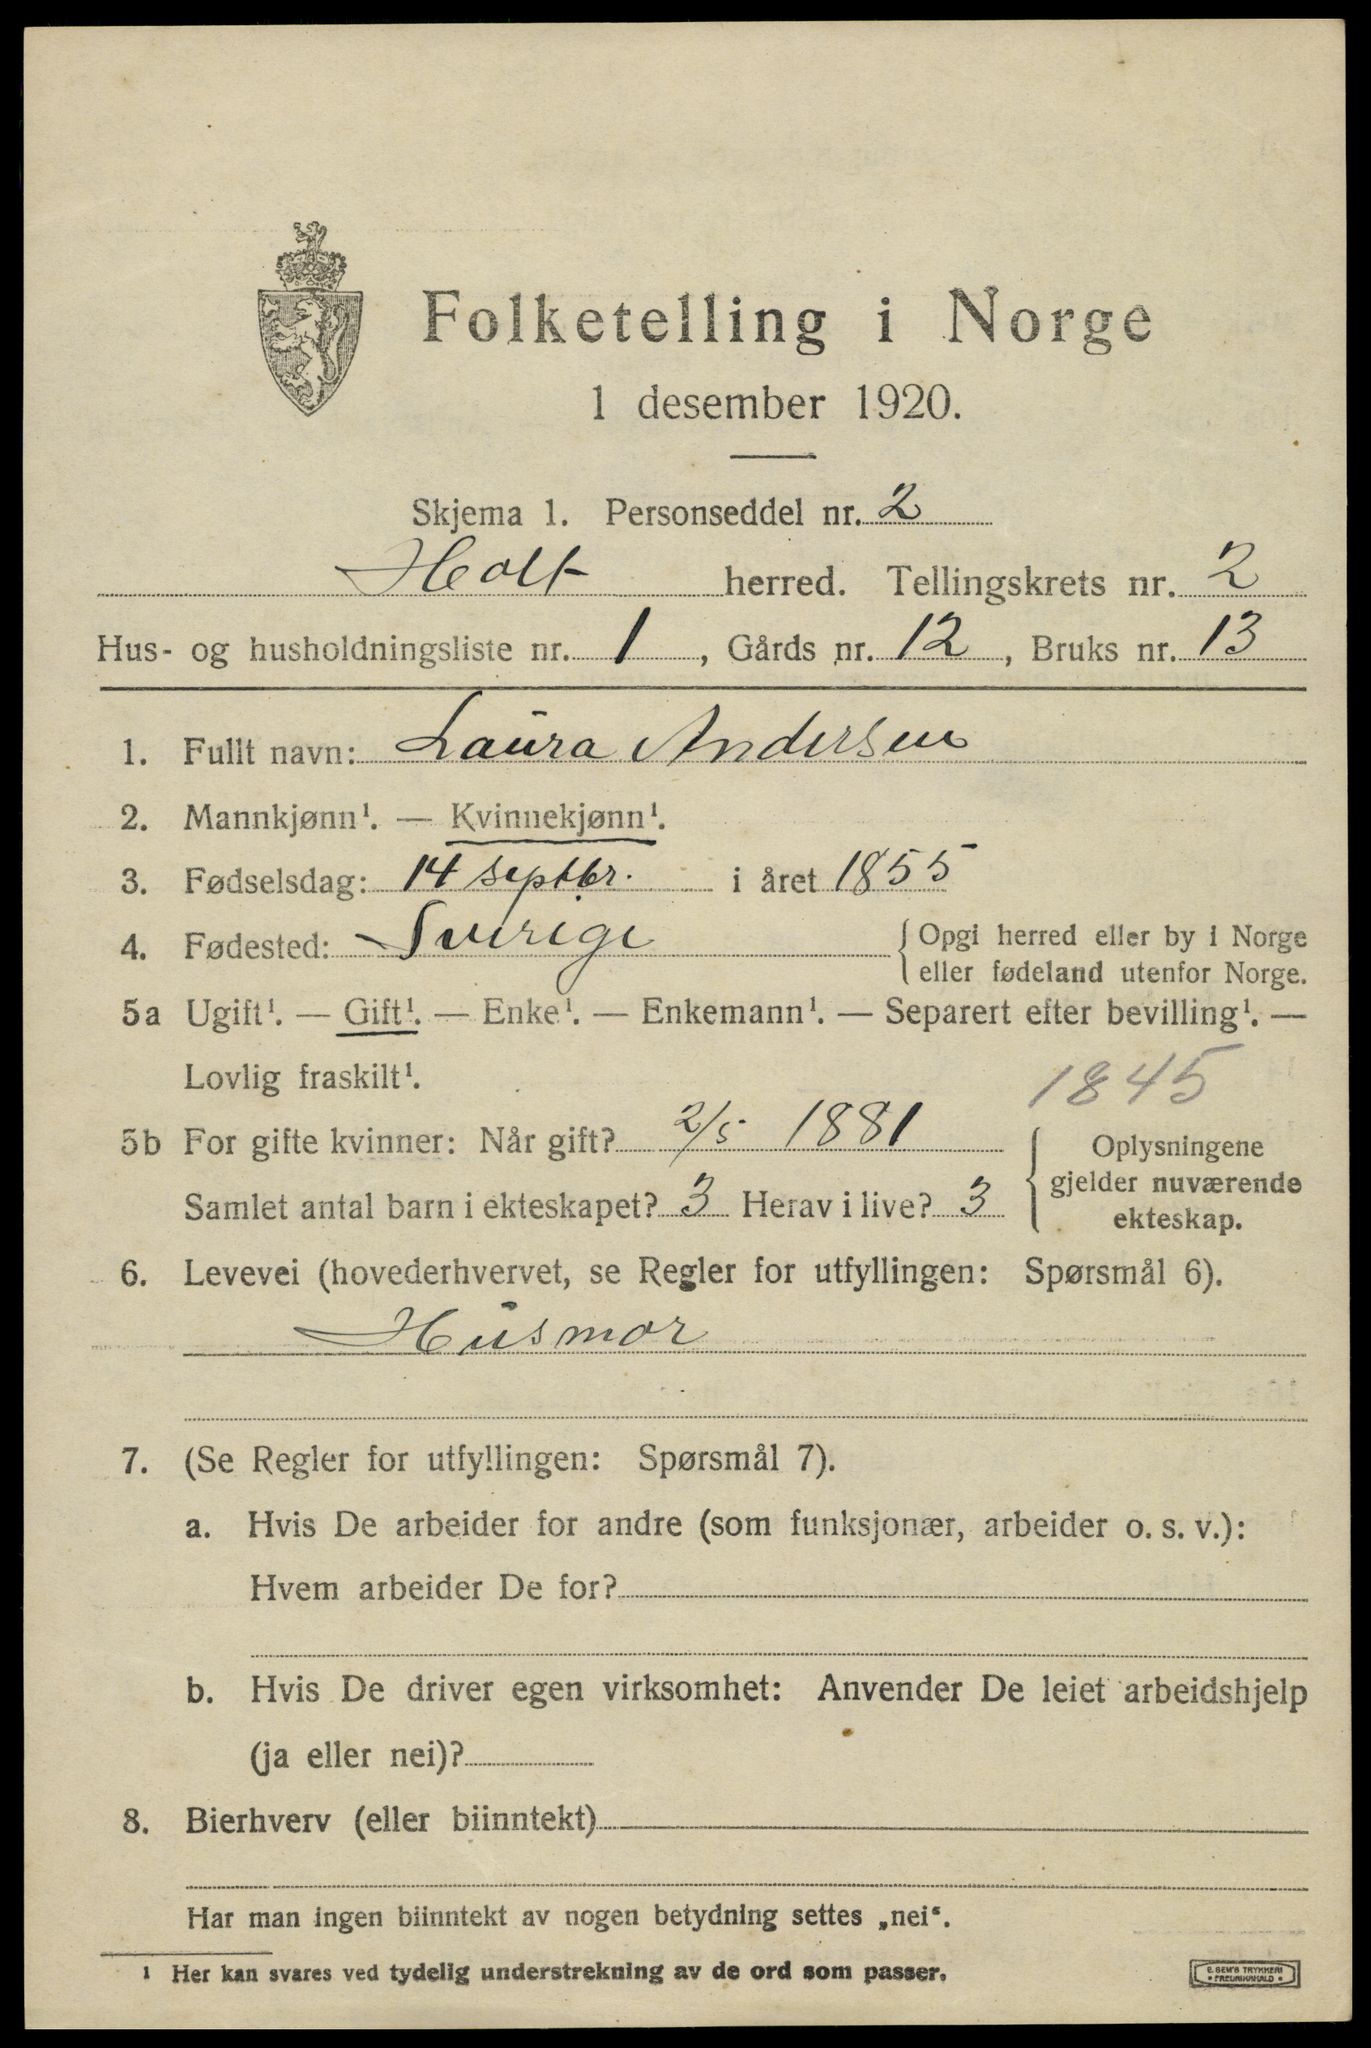 Folketelling i Norge
1 desember 1920.
Skjema 1. Personseddel nr. 2
Holt herred. Tellingskrets nr. 2
Hus- og husholdningsliste nr. 1, Gårds nr. 12, Bruks nr. 13
1. Fullt navn: Laura Andersen
2. Mannkjønn¹. — Kvinnekjønn¹.
3. Fødselsdag: 14 septbr. i året 1855
4. Fødested: Sverige
Opgi herred eller by i Norge
eller fødeland utenfor Norge.
5a Ugift¹. — Gift¹. — Enke¹. — Enkemann¹. — Separert efter bevilling¹. —
Lovlig fraskilt¹.
1845
5b For gifte kvinner: Når gift? 2/5 1881
Samlet antal barn i ekteskapet? 3 Herav i live? 3
Oplysningene
gjelder nuværende
ekteskap.
6. Levevei (hovederhvervet, se Regler for utfyllingen: Spørsmål 6).
Husmor
7. (Se Regler for utfyllingen: Spørsmål 7).
a. Hvis De arbeider for andre (som funksjonær, arbeider o. s. v.):
Hvem arbeider De for?
b. Hvis De driver egen virksomhet: Anvender De leiet arbeidshjelp
(ja eller nei)?
8. Bierhverv (eller biinntekt)
Har man ingen biinntekt av nogen betydning settes „nei“.
1 Her kan svares ved tydelig understrekning av de ord som passer.
E. SEM'S TRYKKERI
• FREDRIKSHALD •